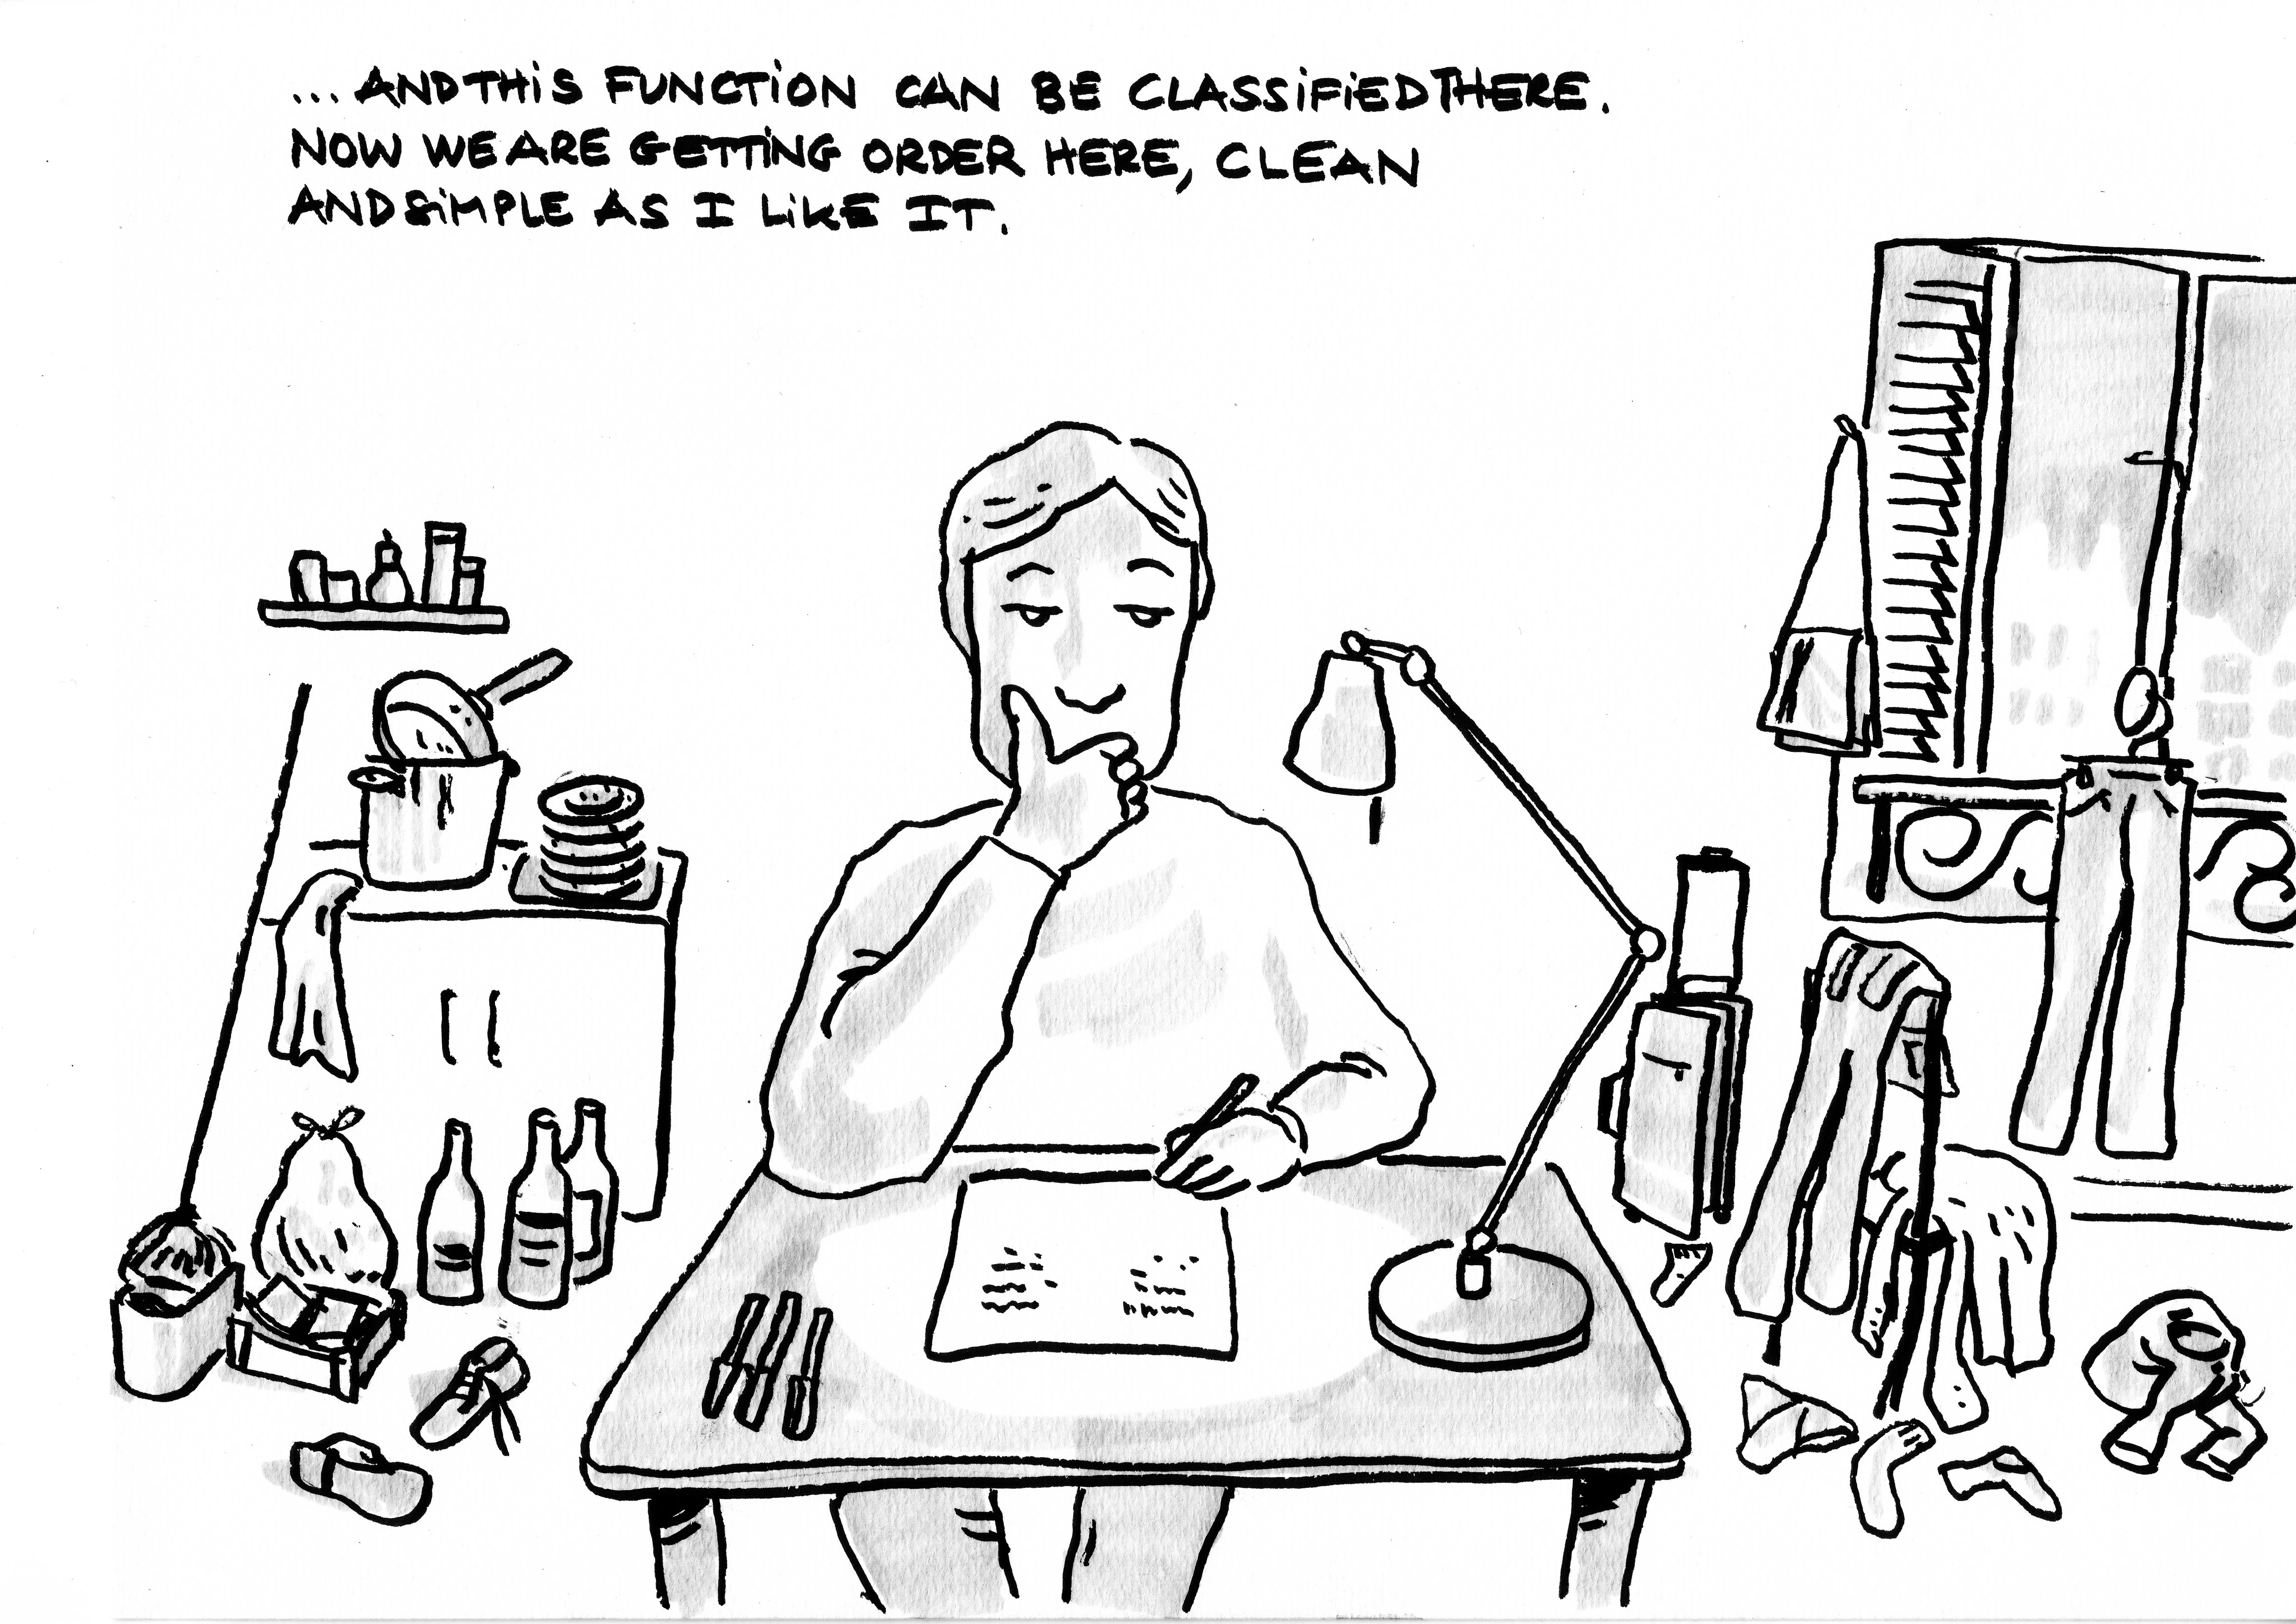 ... AND THIS FUNCTION CAN BE CLASSIFIED THERE.
NOW WE ARE GETTING ORDER HERE, CLEAN
AND SIMPLE AS I LIKE IT.